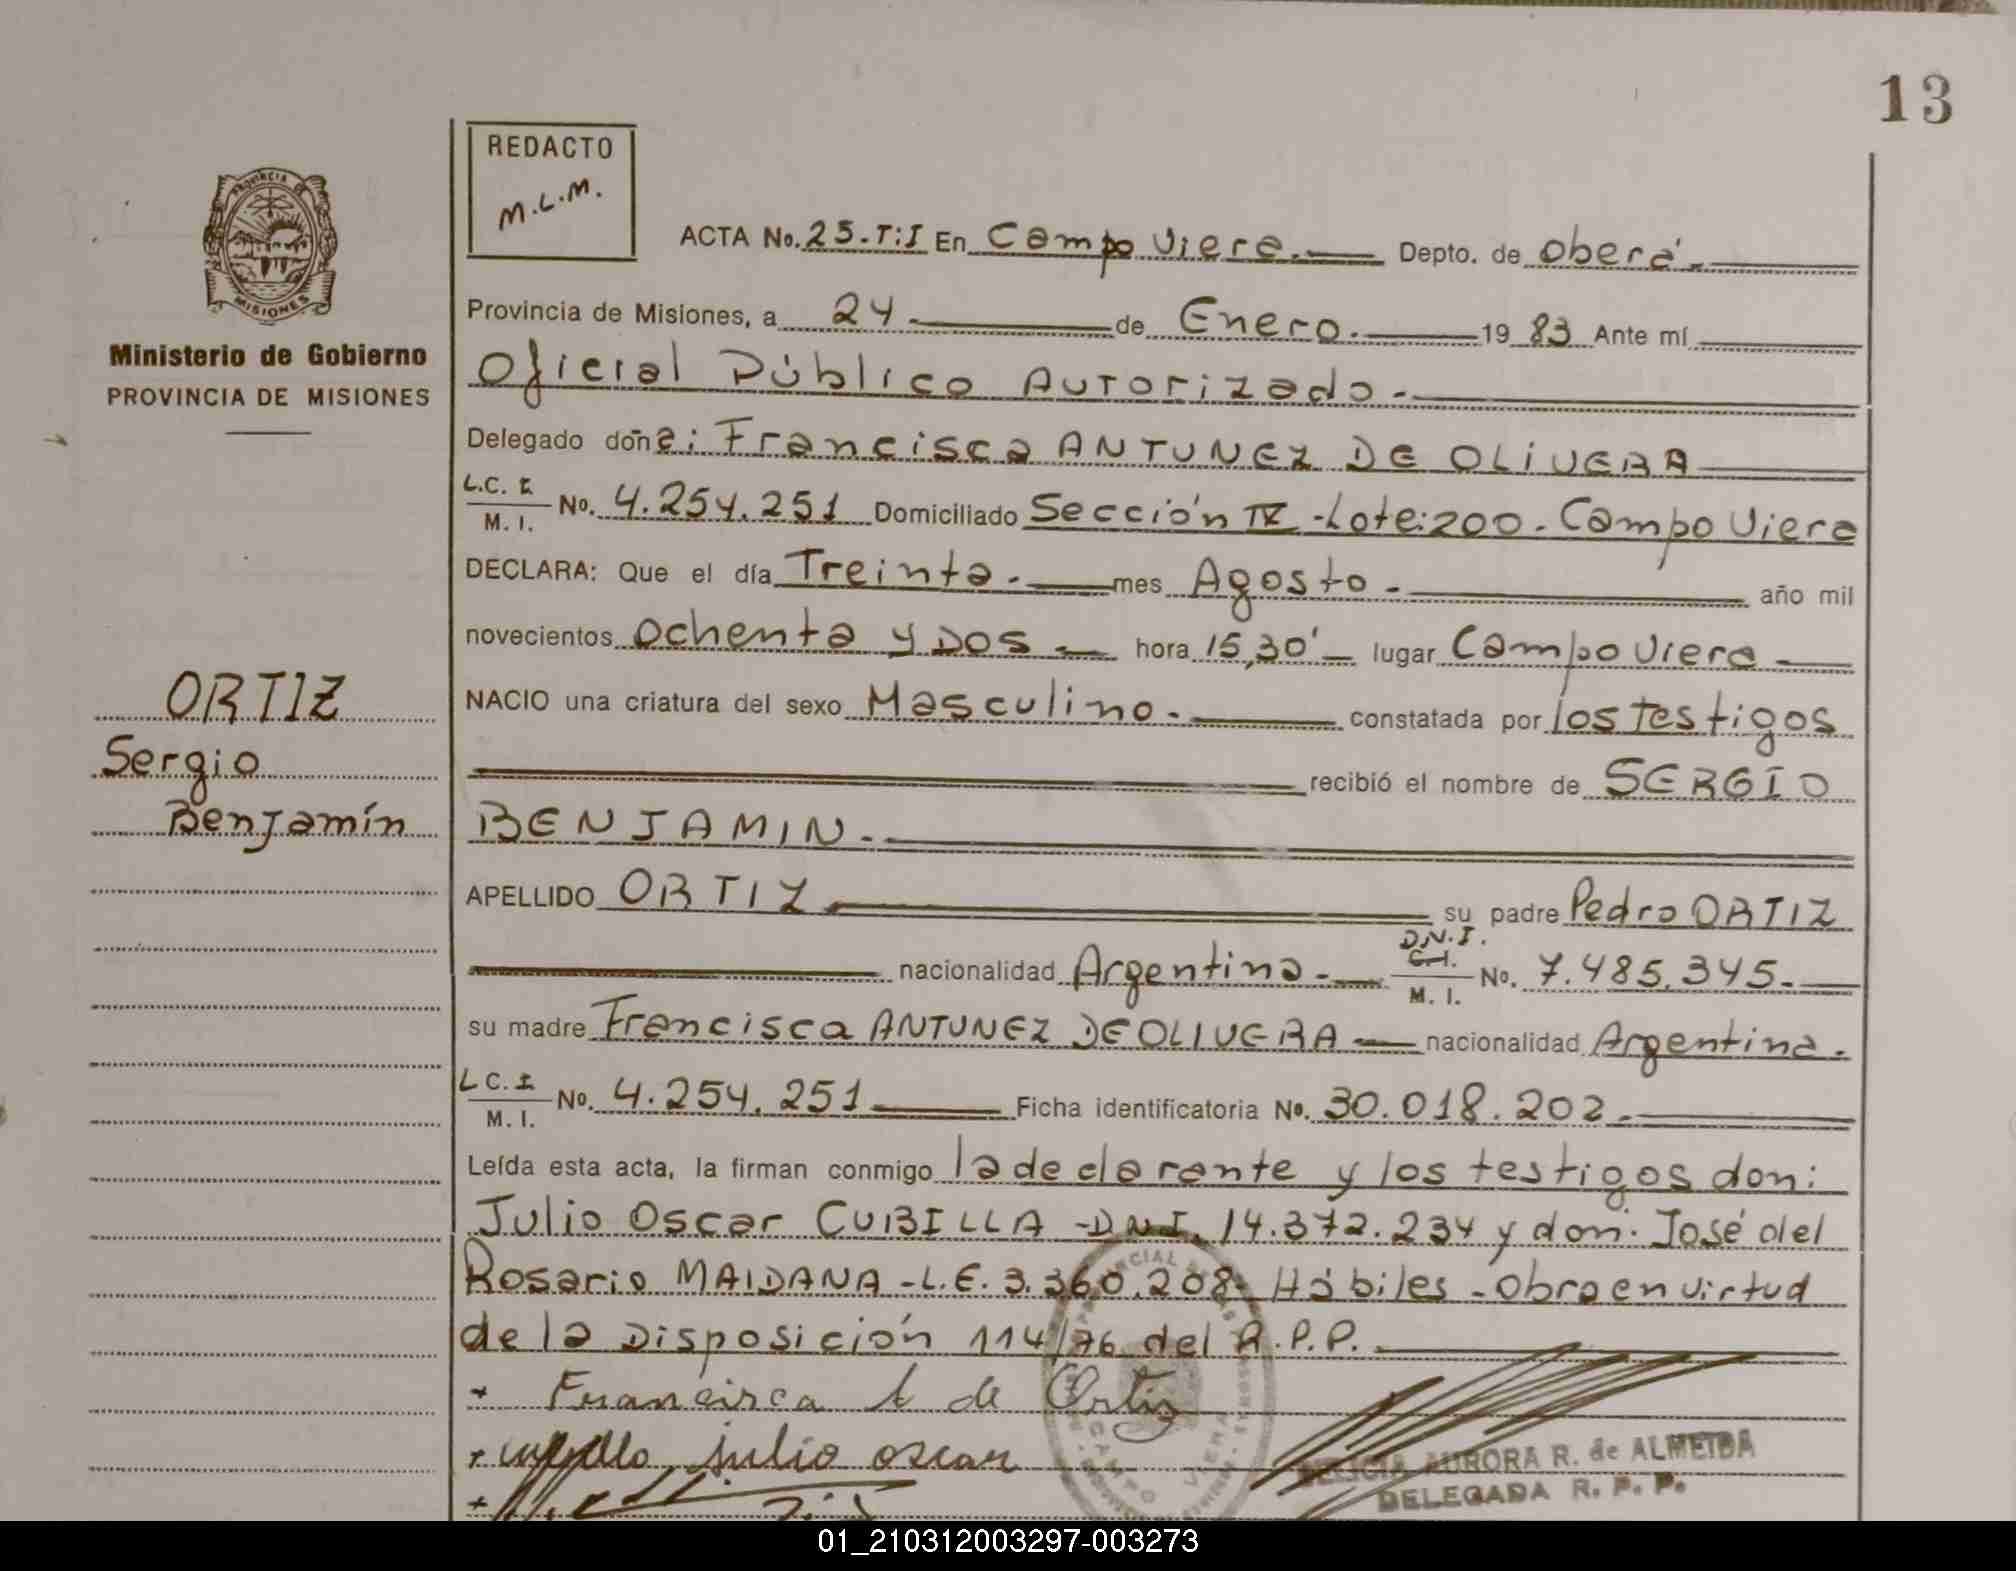 13
REDACTO
M.L.M.
PROVINCIA DE
MISIONES
Ministerio de Gobierno
PROVINCIA DE MISIONES
ORTIZ
Sergio
Benjamín
ACTA No. 25-T:I En Campo Viera. Depto. de Oberá.
Provincia de Misiones, a 24 de Enero. 1983 Ante mí
Oficial Público Autorizado.
Delegado doña: Francisca ANTUNEZ DE OLIVERA
L.C. I M. I. No. 4.254.251 Domiciliado Sección IV - Lote: 200. Campo Viera
DECLARA: Que el día Treinta. mes Agosto. año mil
novecientos Ochenta y DOS hora 15,30' lugar Campo Viera
NACIO una criatura del sexo Masculino. constatada por los testigos
recibió el nombre de SERGIO
BENJAMIN.
APELLIDO ORTIZ su padre Pedro ORTIZ
nacionalidad Argentina. D.N.I. C.I. M. I. No. 7.485.345.
su madre Francisca ANTUNEZ DE OLIVERA nacionalidad Argentina.
L C. I M. I. No. 4.254.251 Ficha identificatoria No. 30.018.202.
Leída esta acta, la firman conmigo la declarante y los testigos don:
Julio Oscar CUBILLA - DNI. 14.372.234 y don: José del
Rosario MAIDANA - L.E. 3.360.208. Hábiles - Obra en virtud
de la Disposición 114/76 del R.P.P.
+ Francisca A de Ortiz
+ julio oscar
CAMPO VIERA
AURORA R. de ALMEIDA
DELEGADA R. P. P.
01_210312003297-003273